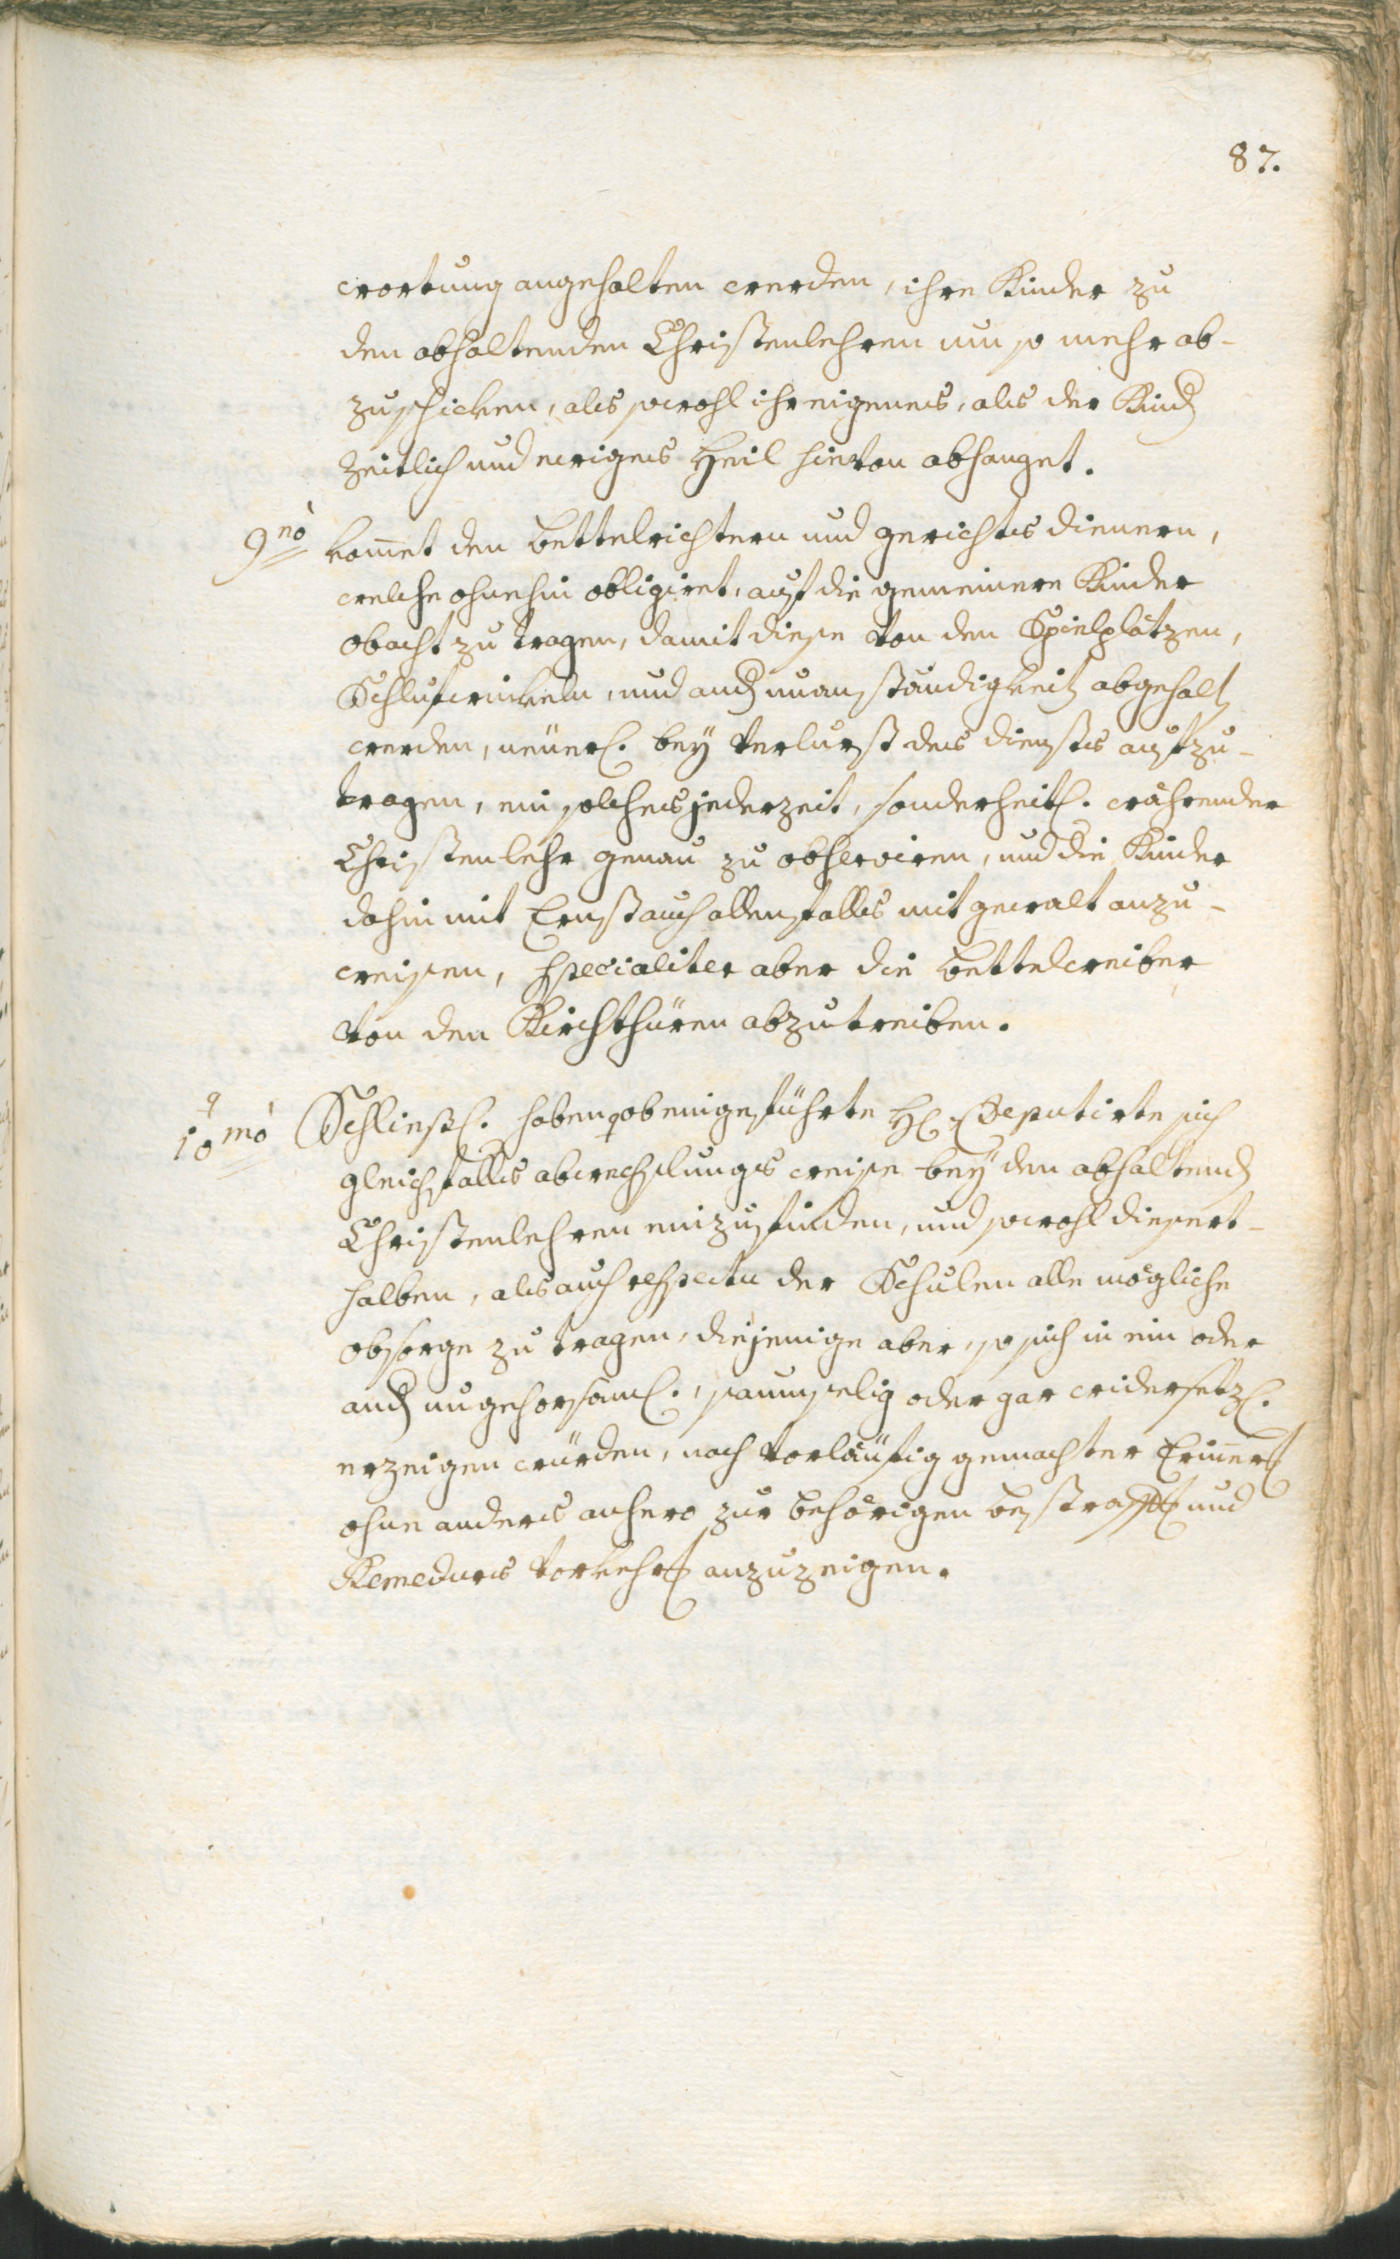 87.
wortung angehalten werden, ihre Kinder zu
den abhaltenden Christenlehren um so mehr ab-
zuschicken, als sowohl ihr eigenes, als der Kind
zeitlich und ewiges Heil hievon abhanget.
9nò kom̄et den bettelrichtern und gerichts dienern,
welche ohnehin obligiret, auf die gemeinere Kinder
obacht zu tragen, damit diese von den Spielplätzen,
Schlufwinkeln, und and unanständigkeit abgehalt
werden, neüerl. bey verlurst des diensts aufzu-
tragen, ein solches jederzeit, sonderheitl. währender
Christenlehr genau zu observiren, und die Kinder
dahin mit Ernst auch allenfalls mit gewalt anzu-
weisen, specialiter aber die bettelweiber
von den Kirchthüren abzutreiben.
10mò Schließl. haben obeingeführte H. Deputirte sich
gleichfalls abwechslungs weise bey den abhaltend
Christenlehren einzufinden, und sowohl diesert-
halben, als auch respectu der Schulen alle mögliche
obsorge zu tragen, diejenige aber, so sich in ein oder
and ungehorsaml., saumselig oder gar widersetzl.
erzeigen würden, nach vorläufig gemachter Erin̄er
ohne anders anhero zur behörigen bestraff und
Remedurs vorkehr anzuzeigen.